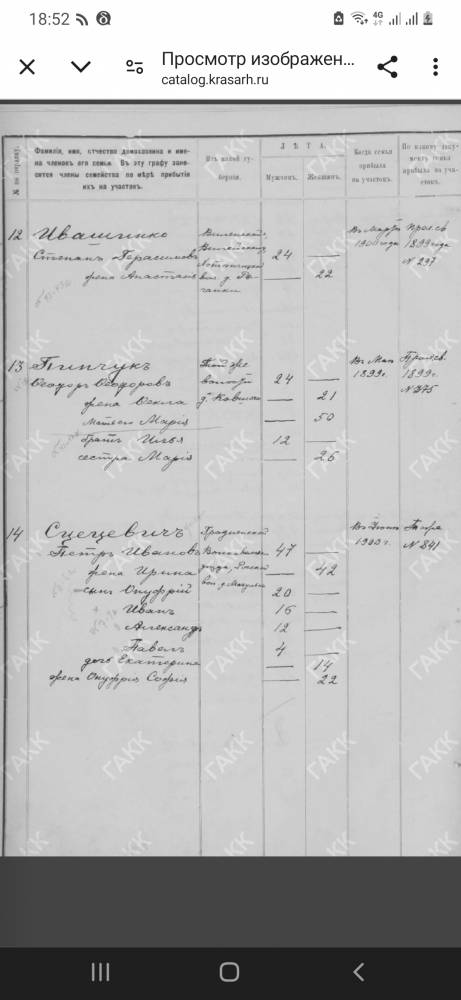 18:52
4G
Просмотр изображен...
catalog.krasarh.ru
№ по порядку.
Фамилія, имя, отчество домохозяина и имена членовъ его семьи. Въ эту графу заносятся члены семейства по мѣрѣ прибытія ихъ на участокъ.
Изъ какой губерніи.
ЛѢТА.
Мужчинъ.
Женщинъ.
Когда семья прибыла на участокъ.
По какому документу семья прибыла на участокъ.
12 Ивашинко
Степанъ Герасимовъ 24
жена Анастасія 22
Въ Мартѣ 1900 года
Проход. 1899 года
№ 297
13 Пипчукъ
Ѳеодоръ Ѳеодоровъ 24
жена Ѳекла 21
Марія 50
братъ Илья 12
сестра Марія 26
Той же волости
Въ Маѣ 1899 г.
1899 г.
№ 275
14 Сцецевичъ
Петръ Ивановъ 47
жена Ирина 42
сынъ Онуфрій 20
Иванъ 16
Александръ 12
Павелъ 4
дочь Екатерина 14
жена Онуфрія Софія 22
Гродненской
уѣзда
1900 г.
№ 841
ГАКК